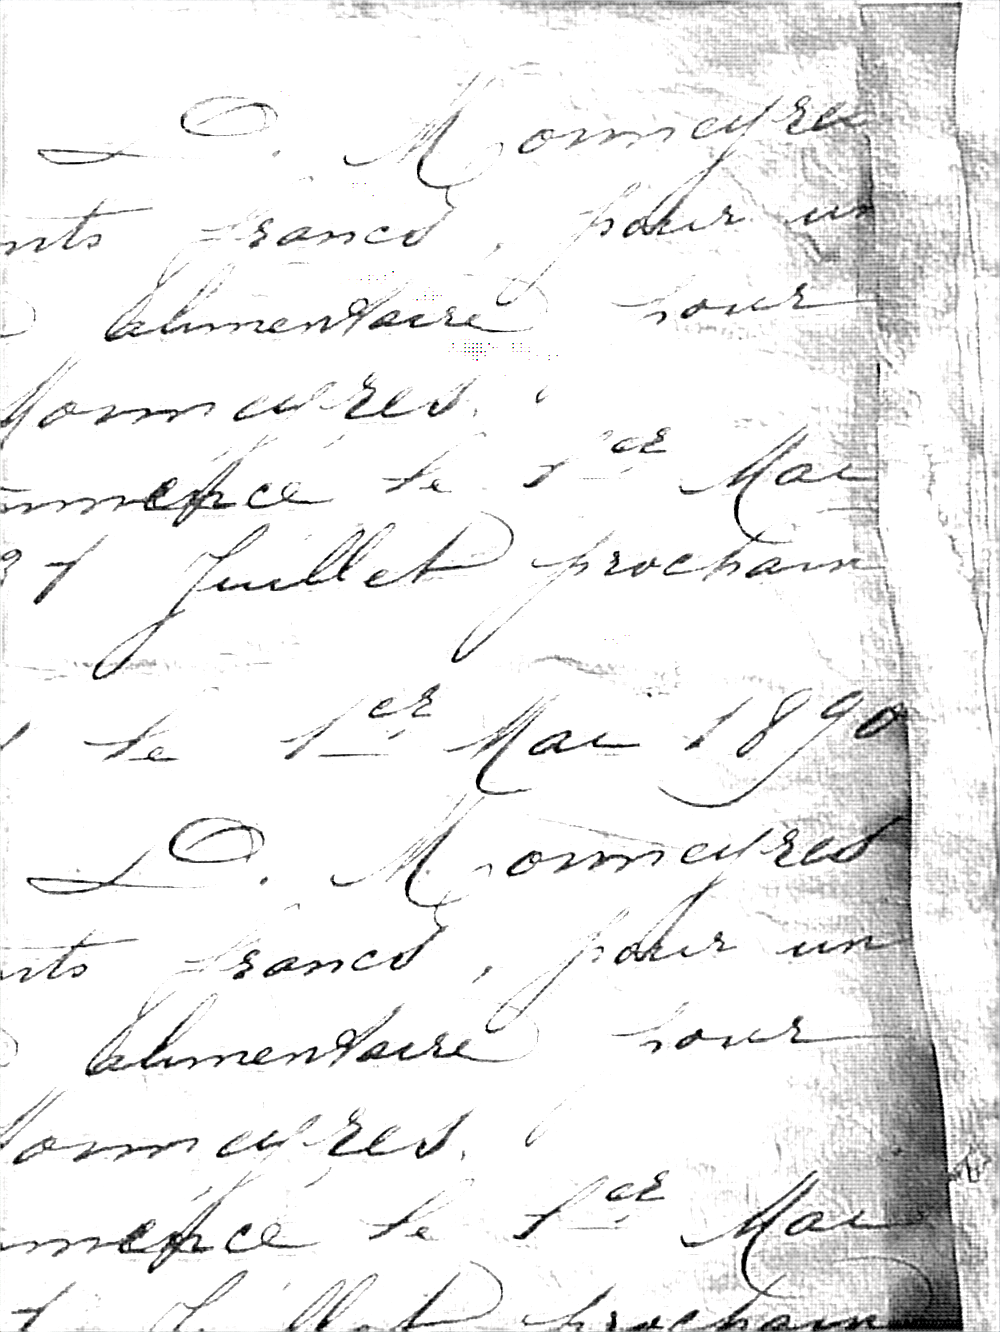 D. Monneyres
nts francs, pour un
alimentaire pour
Monneyres.
mmence le 1er Mai
31 Juillet prochain
le 1er Mai 1890
D. Monneyres
nts francs, pour un
alimentaire pour
Monneyres.
mmence le 1er Mai
Juillet prochain